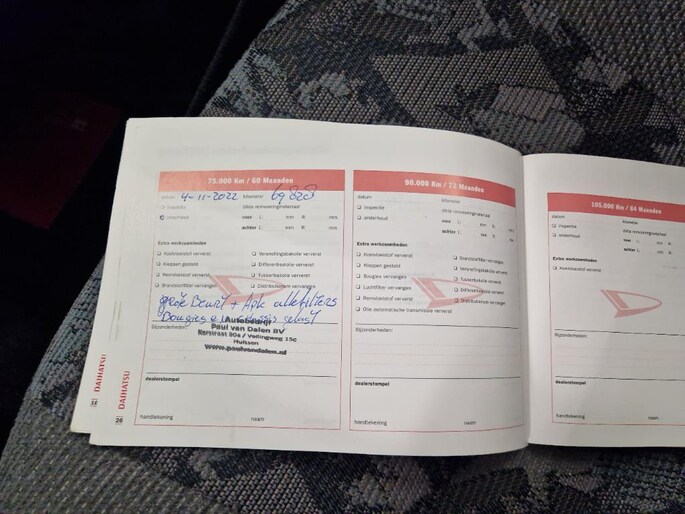 75.000 Km / 60 Maanden
datum 4-11-2022 kilometer 69 828
inspectie dikte remvoeringmateriaal
onderhoud voor L: mm R: mm
achter L: mm R: mm
Extra werkzaamheden
Koelvloeistof ververst Versnellingsbakolie ververst
Kleppen gesteld Differentieelolie ververst
Remvloeistof ververst Tussenbakolie ververst
Brandstoffilter vervangen Distributieriem vervangen
grote Beurt + Apk alle filters
Bougies
Bijzonderheden:
Autobedrijf
Paul van Dalen BV
Karstraat 90a / Veilingweg 15c
Huissen
www.paulvandalen.nl
dealerstempel
handtekening naam
26 DAIHATSU
DAIHATSU
90.000 Km / 72 Maanden
datum kilometer
inspectie dikte remvoeringmateriaal
onderhoud voor L: mm R: mm
achter L: mm R: mm
Extra werkzaamheden
Koelvloeistof ververst Brandstoffilter vervangen
Kleppen gesteld Versnellingsbakolie ververst
Bougies vervangen Differentieelolie ververst
Luchtfilter vervangen Tussenbakolie ververst
Remvloeistof ververst Distributieriem vervangen
Olie automatische transmissie ververst
Bijzonderheden:
dealerstempel
handtekening naam
105.000 Km / 84 Maanden
datum kilometer
inspectie dikte remvoeringmateriaal
onderhoud voor L: mm R:
achter L: mm R:
Extra werkzaamheden
Koelvloeistof ververst
Bijzonderheden:
dealerstempel
handtekening naam